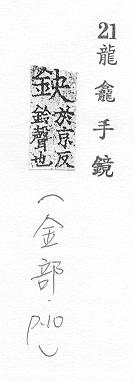 21龍龕手鏡
鉠於京反
鈴聲也
(金部.p.10)